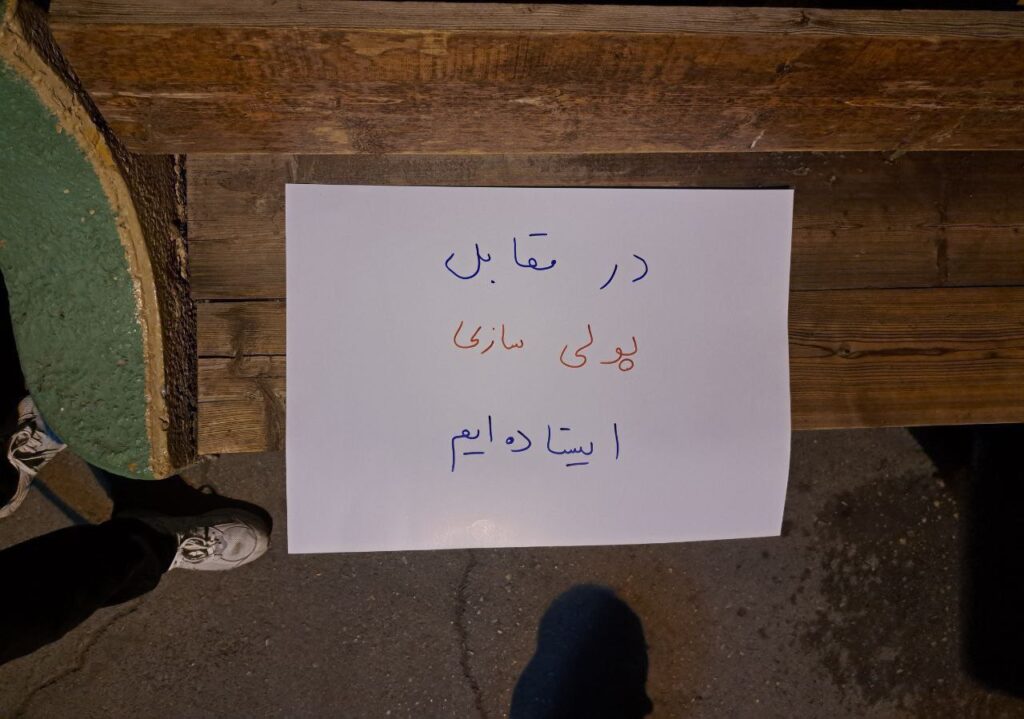 در مقابل
پولی سازی
ایستاده‌ایم